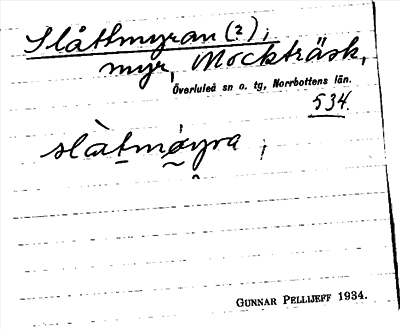 Slåttmyran (2);
myr, Mockträsk,
Överluleå sn o. tg, Norrbottens län.
534.
slàtmǿyra ;
GUNNAR PELLIJEFF 1934.